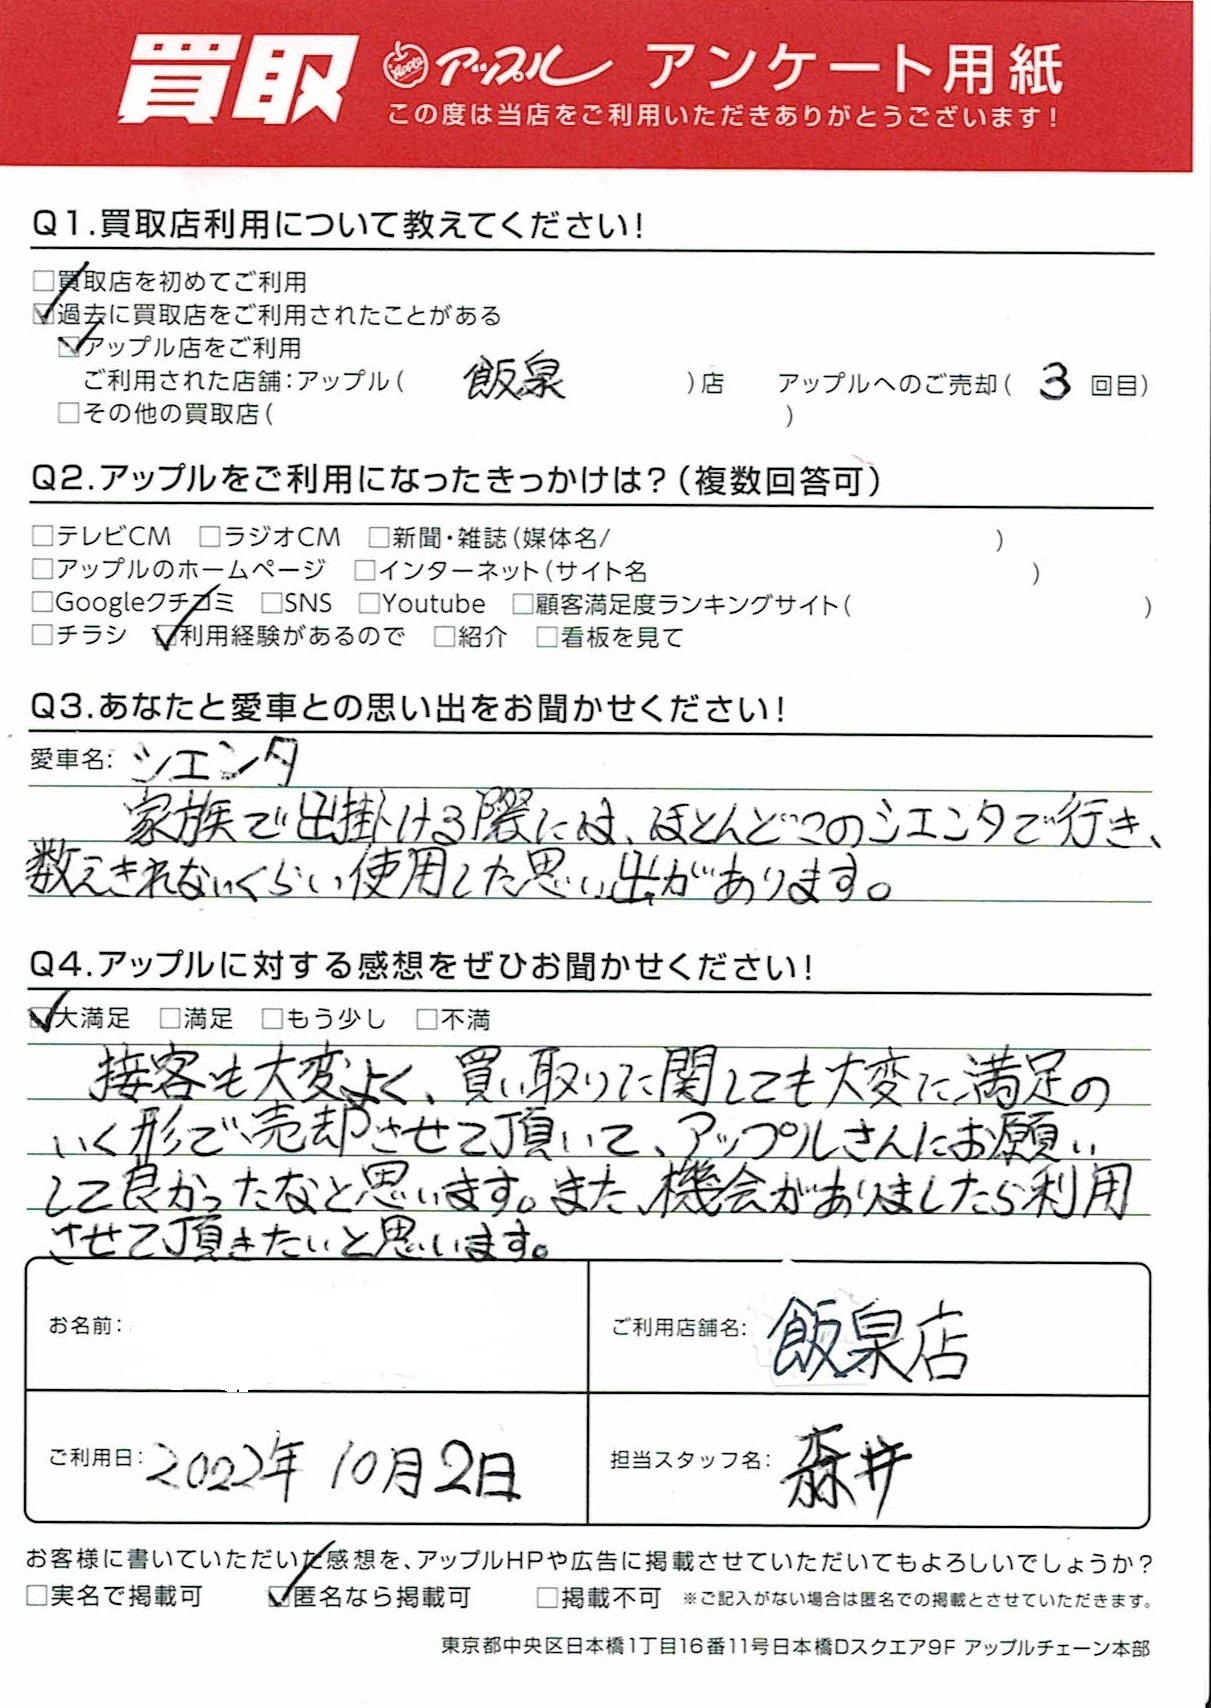 買取 Apple アップル アンケート用紙
この度は当店をご利用いただきありがとうございます!
Q1.買取店利用について教えてください!
□買取店を初めてご利用
☑過去に買取店をご利用されたことがある
☑アップル店をご利用
ご利用された店舗:アップル( 飯泉 )店 アップルへのご売却( 3 回目)
□その他の買取店( )
Q2.アップルをご利用になったきっかけは?(複数回答可)
□テレビCM □ラジオCM □新聞・雑誌(媒体名/ )
□アップルのホームページ □インターネット(サイト名 )
□Googleクチコミ □SNS □Youtube □顧客満足度ランキングサイト( )
□チラシ ☑利用経験があるので □紹介 □看板を見て
Q3.あなたと愛車との思い出をお聞かせください!
愛車名: シエンタ
家族で出掛ける際には、ほとんどこのシエンタで行き、
数えきれないくらい使用した思い出があります。
Q4.アップルに対する感想をぜひお聞かせください!
☑大満足 □満足 □もう少し □不満
接客も大変よく、買い取りに関しても大変に満足の
いく形で売却させて頂いて、アップルさんにお願い
して良かったなと思います。また、機会がありましたら利用
させて頂きたいと思います。
お名前: ご利用店舗名: 飯泉店
ご利用日: 2022年 10月2日 担当スタッフ名: 森井
お客様に書いていただいた感想を、アップルHPや広告に掲載させていただいてもよろしいでしょうか?
□実名で掲載可 ☑匿名なら掲載可 □掲載不可 ※ご記入がない場合は匿名での掲載とさせていただきます。
東京都中央区日本橋1丁目16番11号日本橋Dスクエア9F アップルチェーン本部